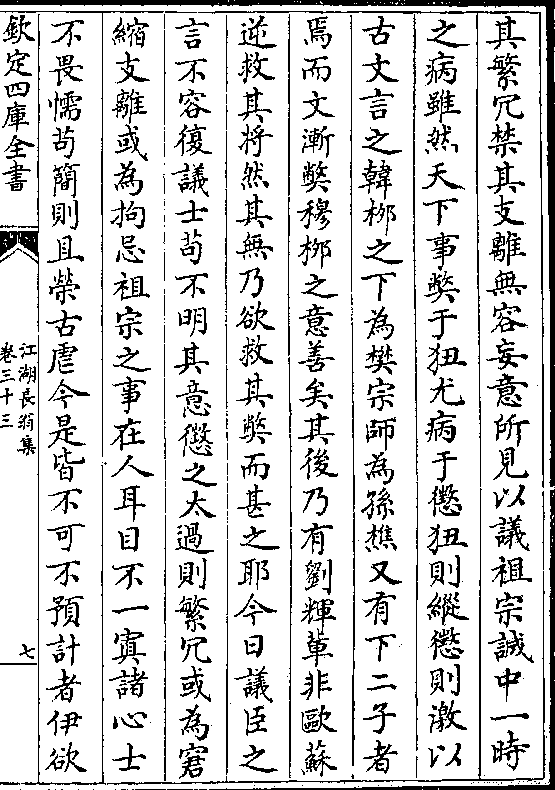 其繁冗禁其支離無容妄意所見以議祖宗誠中一時
之病雖然天下事獘于狃尤病于懲狃則縱懲則激以
古文言之韓栁之下為樊宗師為孫樵又有下二子者
焉而文漸獘穆栁之意善矣其後乃有劉輝軰非歐蘇
逆救其将然其無乃欲救其獘而甚之耶今日議臣之
言不容復議士茍不明其意懲之太過則繁冗或為窘
縮支離或為拘忌祖宗之事在人耳目不一寘諸心士
不畏懦茍簡則且榮古虐今是皆不可不預計者伊欲
欽定四庫全書
江湖長翁集
卷三十三
七